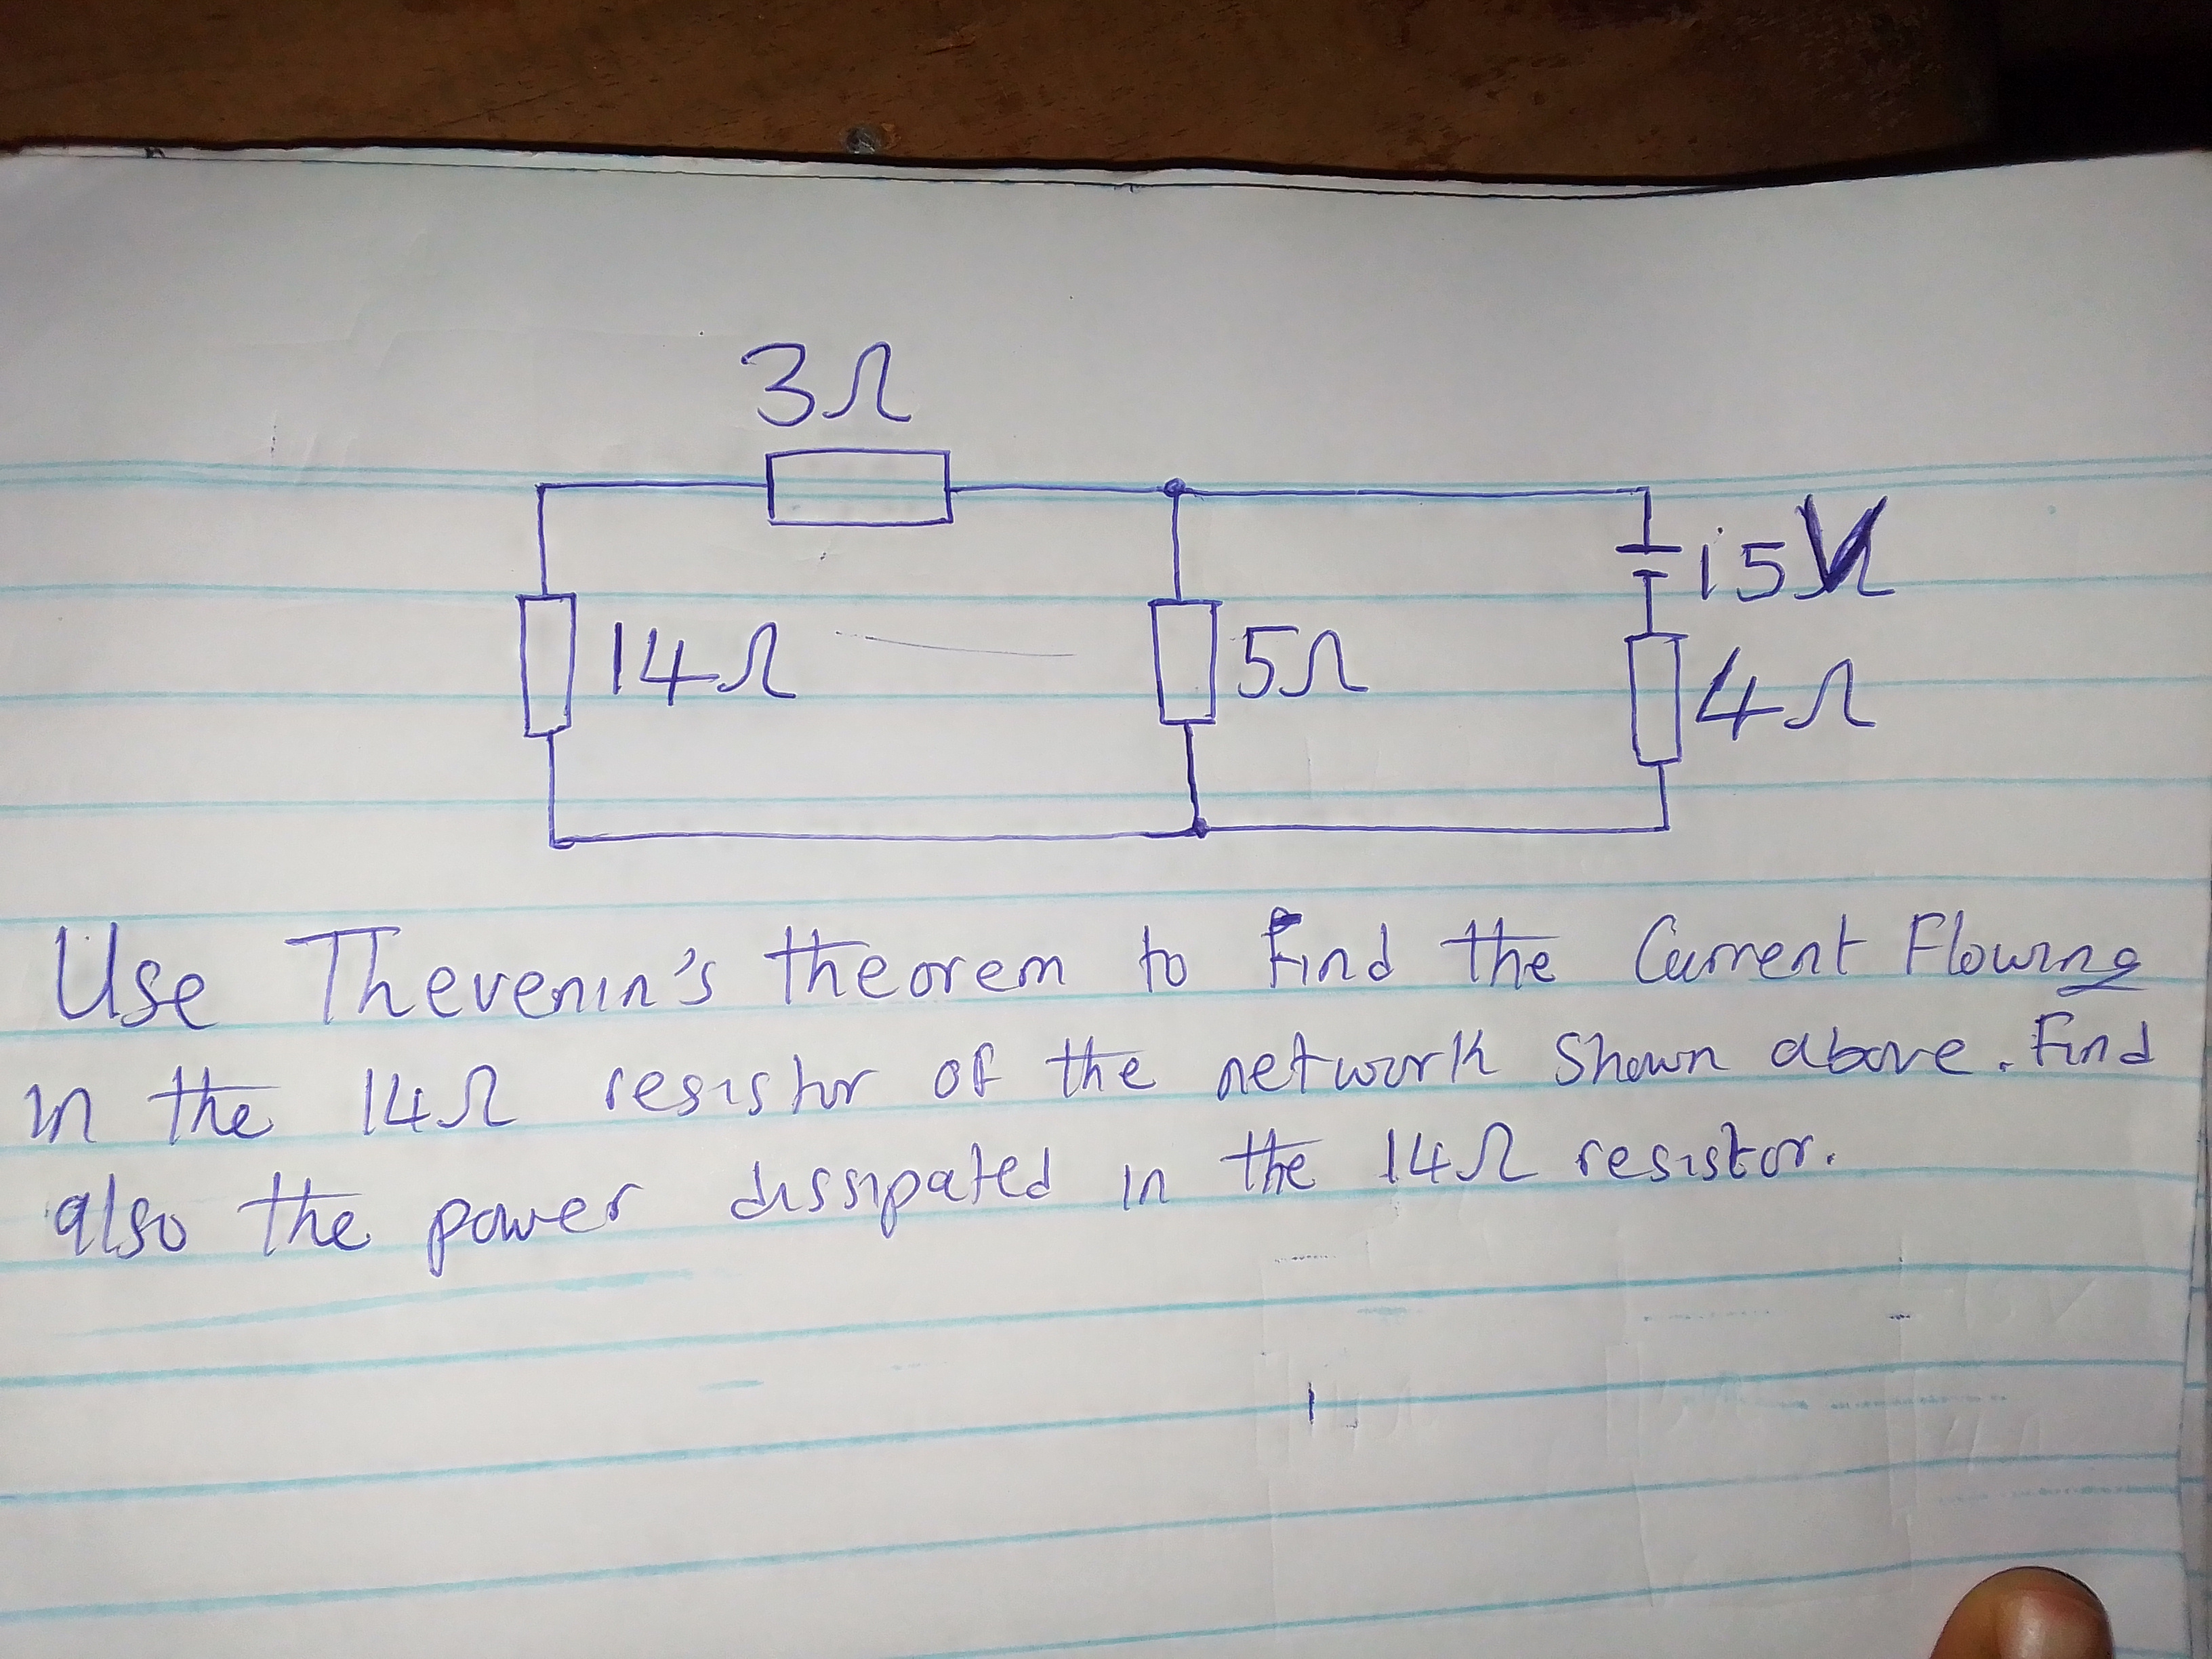 3Ω
15V
14Ω
5Ω
4Ω
Use Thevenin's theorem to find the Current Flowing
in the 14Ω resistor of the network shown above. Find
also the power dissipated in the 14Ω resistor.